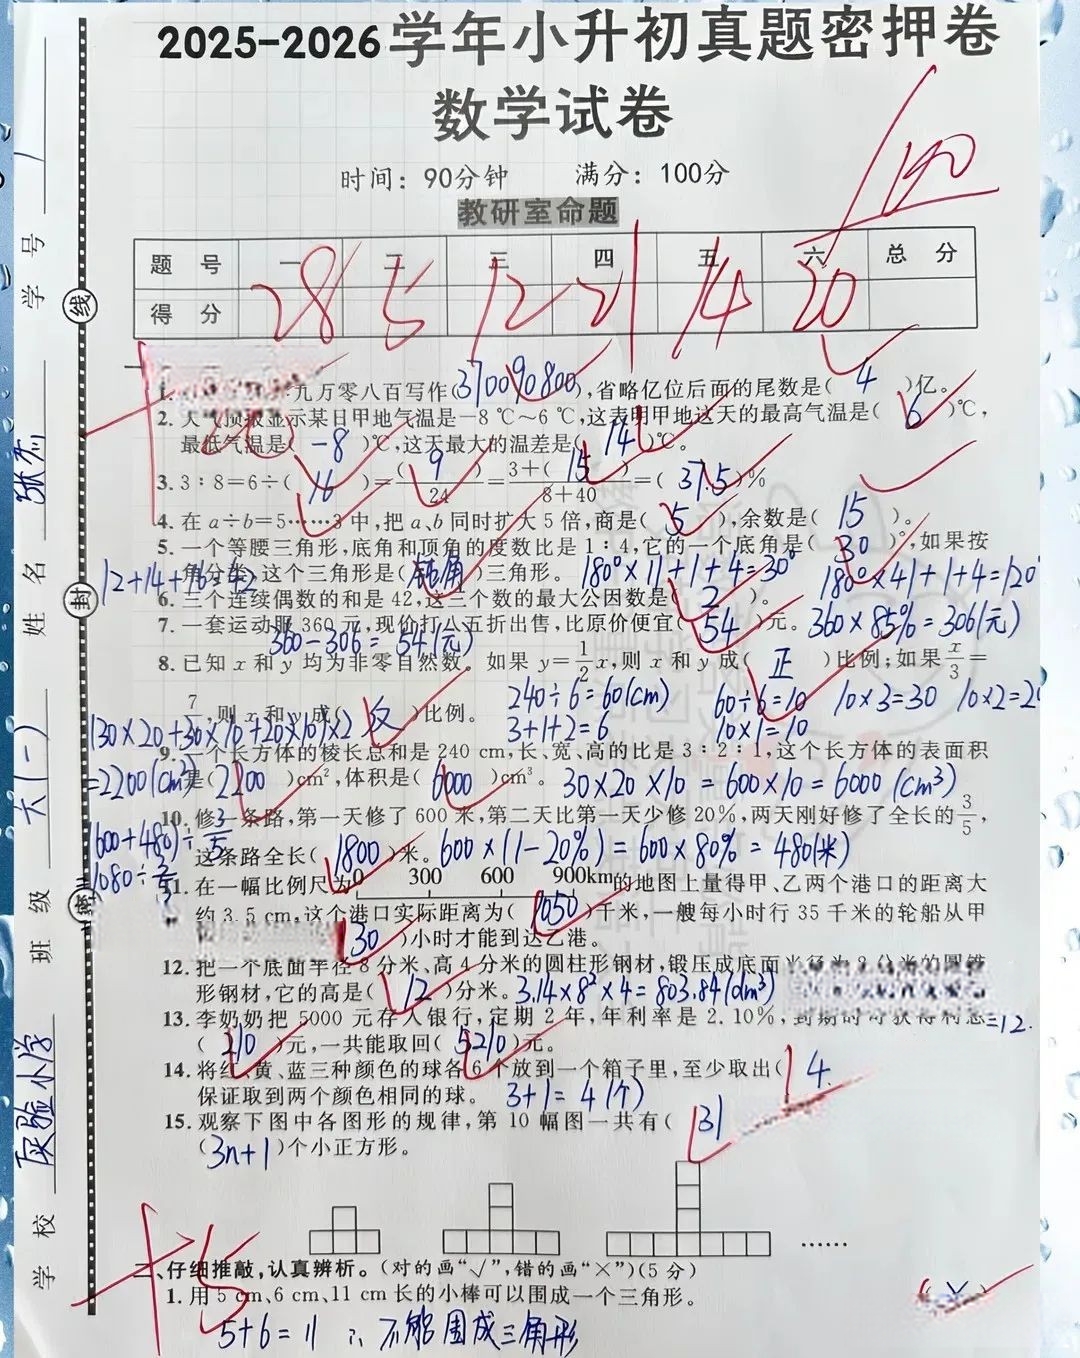 2025-2026学年小升初真题密押卷
数学试卷
时间：90分钟 满分：100分
教研室命题
100
题 号 一 二 三 四 五 六 总 分
得 分 28 5 12 21 14 20
1. 九万零八百写作(370090800),省略亿位后面的尾数是( 4 )亿。
2. 天气预报显示某日甲地气温是－8 ℃～6 ℃,这表明甲地这天的最高气温是( 6 )℃,
最低气温是( －8 )℃,这天最大的温差是( 14 )℃。
3. 3：8＝6÷( 16 )＝( 9 )/24＝3＋( 15 )/8＋40＝( 37.5 )%
4. 在 a÷b＝5……3 中,把 a、b 同时扩大 5 倍,商是( 5 ),余数是( 15 )。
5. 一个等腰三角形,底角和顶角的度数比是 1：4,它的一个底角是( 30 )°,如果按
角分类,这个三角形是( 钝角 )三角形。 180°×1/1+1+4=30° 180°×4/1+1+4=120°
12+14+16=42
6. 三个连续偶数的和是 42,这三个数的最大公因数是( 2 )。
7. 一套运动服 360 元,现价打八五折出售,比原价便宜( 54 )元。 360×85%=306(元)
360-306=54(元)
8. 已知 x 和 y 均为非零自然数。如果 y＝1/2x,则 x 和 y 成( 正 )比例;如果x/3＝
7/,则 x 和 y 成( 反 )比例。 240÷6=60(cm) 60÷6=10 10×3=30 10×2=20
3+1+2=6 10×1=10
(30×20+30×10+20×10)×2
9. 一个长方体的棱长总和是 240 cm,长、宽、高的比是 3：2：1,这个长方体的表面积
=2200(cm²) 是( 2200 )cm²,体积是( 6000 )cm³。 30×20×10=600×10=6000(cm³)
10. 修一条路,第一天修了 600 米,第二天比第一天少修 20%,两天刚好修了全长的3/5,
(600+480)÷3/5
这条路全长( 1800 )米。 600×(1-20%)=600×80%=480(米)
1080÷3/5
11. 在一幅比例尺为0 300 600 900km的地图上量得甲、乙两个港口的距离大
约 3.5 cm,这个港口实际距离为( 1050 )千米,一艘每小时行 35 千米的轮船从甲
( 30 )小时才能到达乙港。
12. 把一个底面半径 8 分米、高 4 分米的圆柱形钢材,锻压成底面半径为 8 分米的圆锥
形钢材,它的高是( 12 )分米。 3.14×8²×4=803.84(dm³)
=12.
13. 李奶奶把 5000 元存入银行,定期 2 年,年利率是 2.10%,到期时可获得利息
( 210 )元,一共能取回( 5210 )元。
14. 将红、黄、蓝三种颜色的球各 6 个放到一个箱子里,至少取出( 4
保证取到两个颜色相同的球。 3+1=4(个)
15. 观察下图中各图形的规律,第 10 幅图一共有( 31
( 3n+1 )个小正方形。
……
二、仔细推敲,认真辨析。(对的画“√”,错的画“×”)(5 分)
1. 用 5 cm、6 cm、11 cm 长的小棒可以围成一个三角形。 ( × )
5+6=11 ∴不能围成三角形
+5
学 校 实验小学 班 级 六(一) 姓 名 张杰 学 号
密 封 线